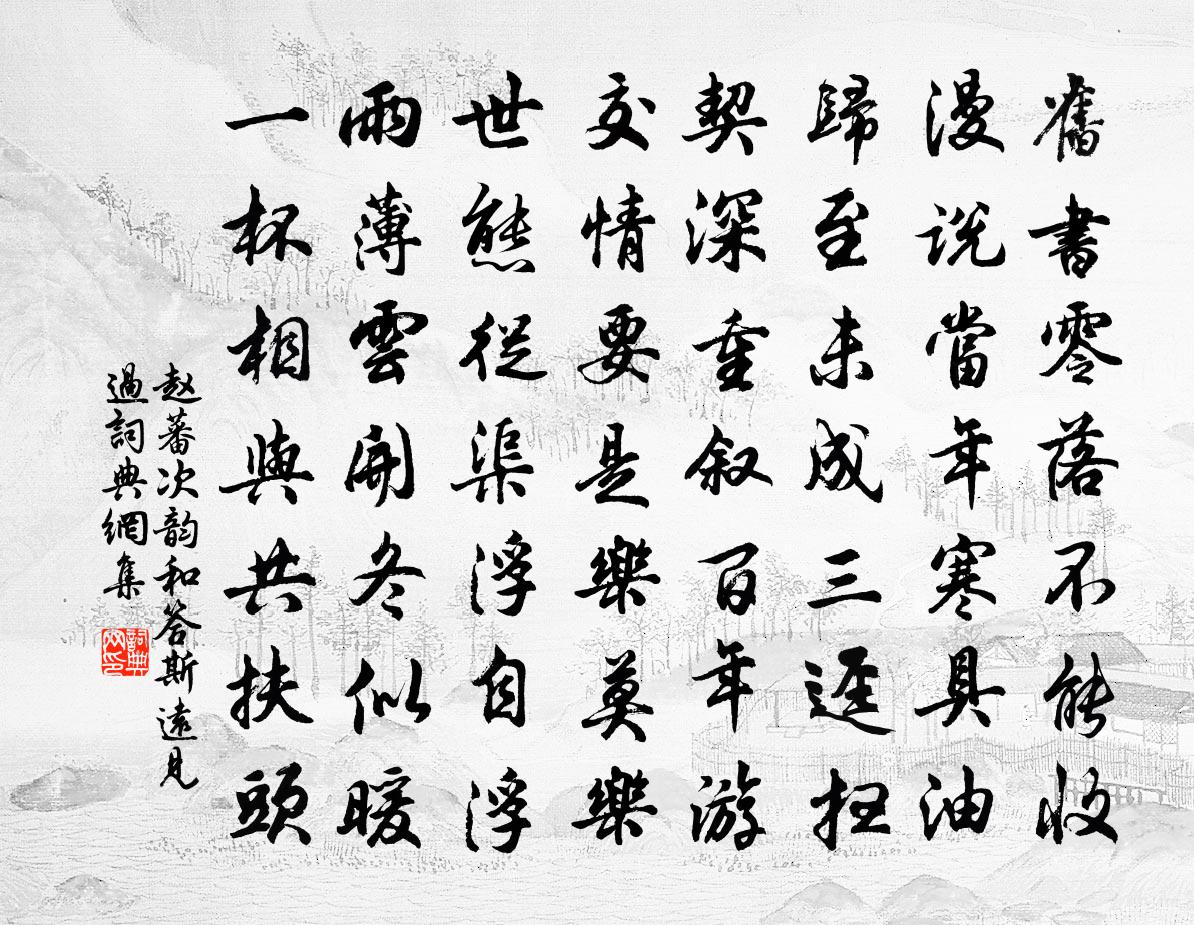 舊書零落不能收
漫說當年寒具油
歸至未成三徑
契深重叙百年游
交情要是樂莫樂
世態從渠浮自浮
雨薄雲開冬似暖
一杯相與共扶頭
赵蕃次韵和答斯遠見
過詞典網集
詞典網印